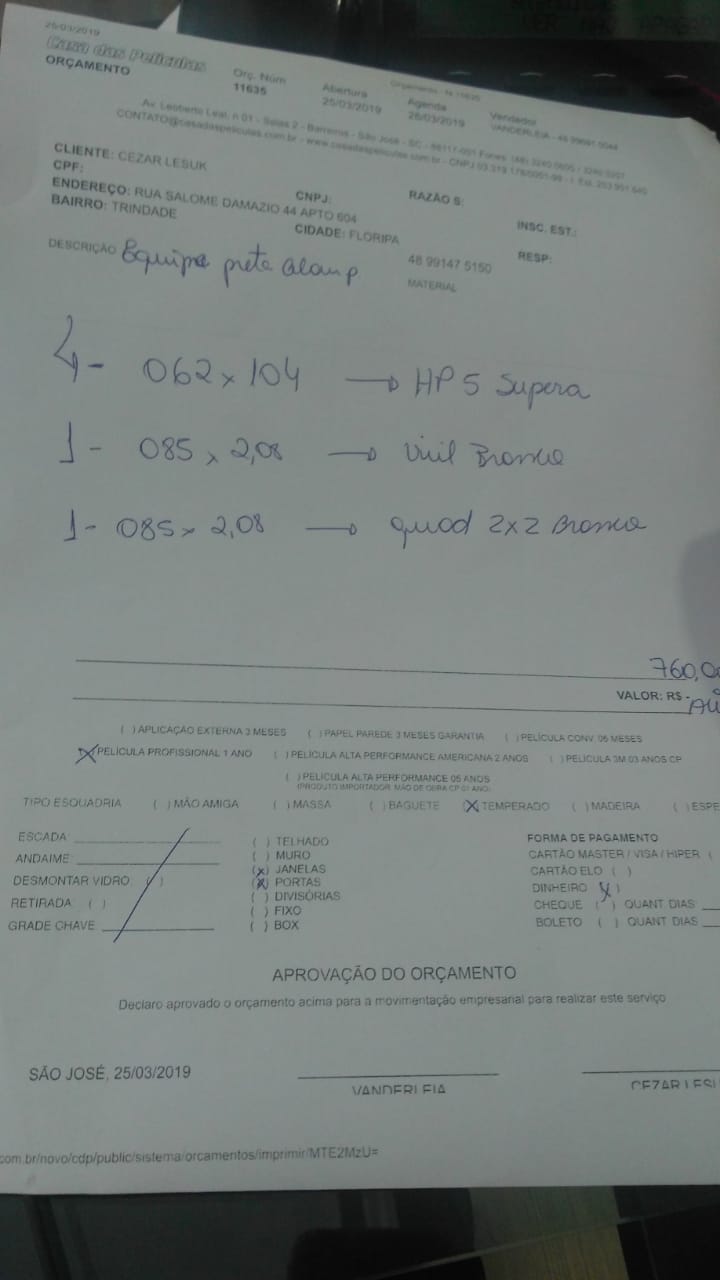 25/03/2019
Casa das Películas
ORÇAMENTO
Orç. Núm
11635
Abertura
25/03/2019
Orçamento - N 11635
Agenda
26/03/2019
Vendedor
VANDERLEIA - 48
Av. Leoberto Leal, n 01 - Salas 2 - Barreiros - São José - SC - 88117-001 Fones: (48)
CONTATO@casadaspeliculas.com.br - www.casadaspeliculas.com.br - CNPJ
CLIENTE: CEZAR LESUK
CPF:
CNPJ:
RAZÃO S:
ENDEREÇO: RUA SALOME DAMAZIO 44 APTO 604
INSC. EST.:
BAIRRO: TRINDADE
CIDADE: FLORIPA
48 99147 5150
RESP:
DESCRIÇÃO
MATERIAL
4 - 062 x 104 → HP 5 Supera
1 - 085 x 2,08 → Vinil Branco
1 - 085 x 2,08 → quad 2x2 Branco
760,0
VALOR: R$ -
( ) APLICAÇÃO EXTERNA 3 MESES ( ) PAPEL PAREDE 3 MESES GARANTIA ( ) PELÍCULA CONV. 06 MESES
(X) PELÍCULA PROFISSIONAL 1 ANO ( ) PELÍCULA ALTA PERFORMANCE AMERICANA 2 ANOS ( ) PELICULA 3M 03 ANOS CP
( ) PELÍCULA ALTA PERFORMANCE 05 ANOS
(PRODUTO IMPORTADOR. MÃO DE OBRA CP 01 ANO)
TIPO ESQUADRIA ( ) MÃO AMIGA ( ) MASSA ( ) BAGUETE (X) TEMPERADO ( ) MADEIRA ( ) ESPE
ESCADA:
ANDAIME:
DESMONTAR VIDRO: ( )
RETIRADA: ( )
GRADE CHAVE
( ) TELHADO
( ) MURO
(x) JANELAS
(x) PORTAS
( ) DIVISÓRIAS
( ) FIXO
( ) BOX
FORMA DE PAGAMENTO
CARTÃO MASTER / VISA / HIPER (
CARTÃO ELO ( )
DINHEIRO (x)
CHEQUE ( ) QUANT DIAS
BOLETO ( ) QUANT DIAS
APROVAÇÃO DO ORÇAMENTO
Declaro aprovado o orçamento acima para a movimentação empresarial para realizar este serviço
SÃO JOSÉ, 25/03/2019
VANDERLEIA
CEZAR LESU
com.br/novo/cdp/public/sistema/orcamentos/imprimir/MTE2MzU=